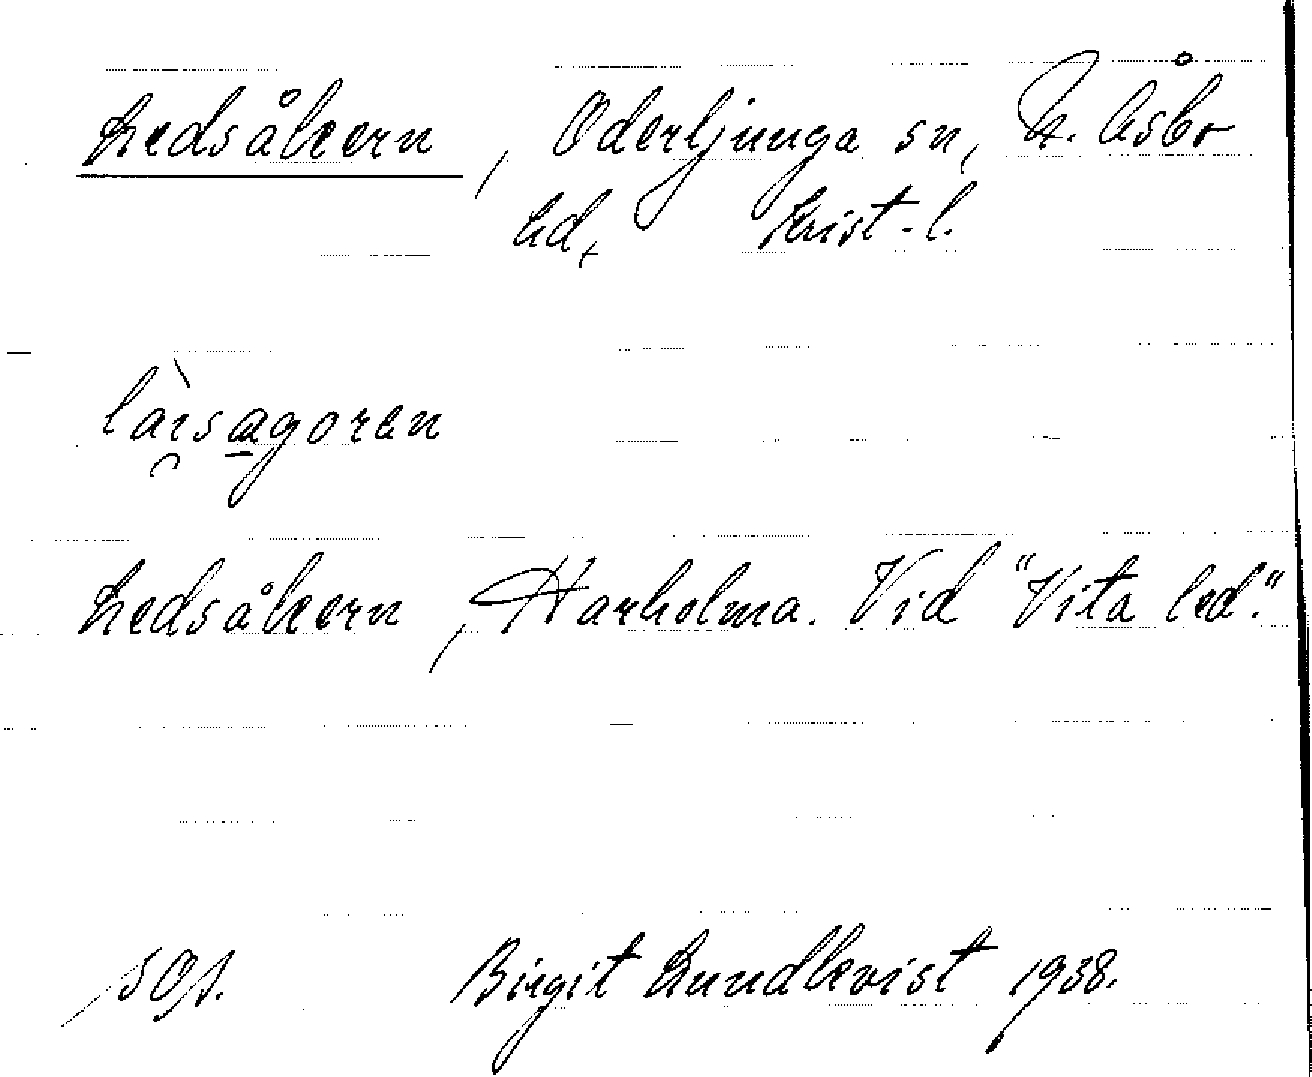 Ledsåkern, Oderljunga sn, N. Åsbo
hd, Krist-l.
làisagoren
Ledsåkern, Harholma. Vid "Vita led."
Birgit Lundkvist 1938.